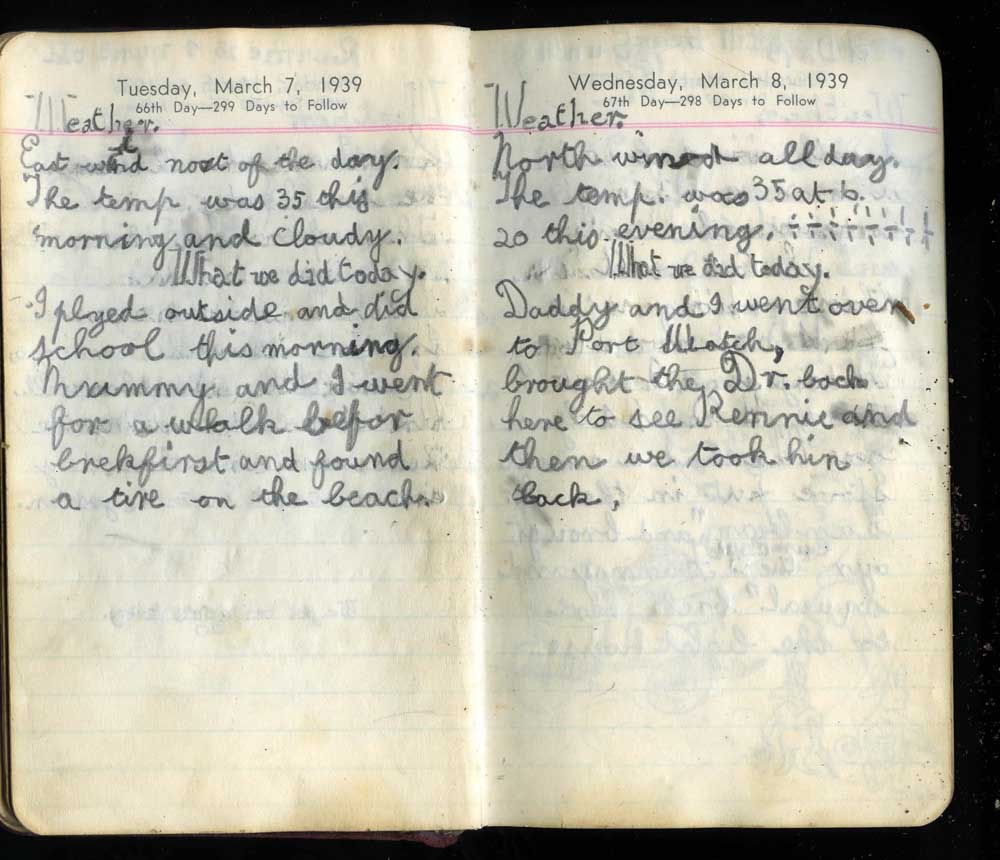 Tuesday, March 7, 1939
66th Day—299 Days to Follow
Weather.
East wind most of the day.
The temp was 35 this
morning and cloudy.
What we did today.
I plyed outside and did
school this morning.
Mummy and I went
for a walk befor
brekfirst and found
a tire on the beach.
Wednesday, March 8, 1939
67th Day—298 Days to Follow
Weather.
North wind all day.
The temp. was 35 at 6.
20 this evening.
What we did today.
Daddy and I went over
to Port
brought the Dr. back
here to see Rennie and
then we took him
back,